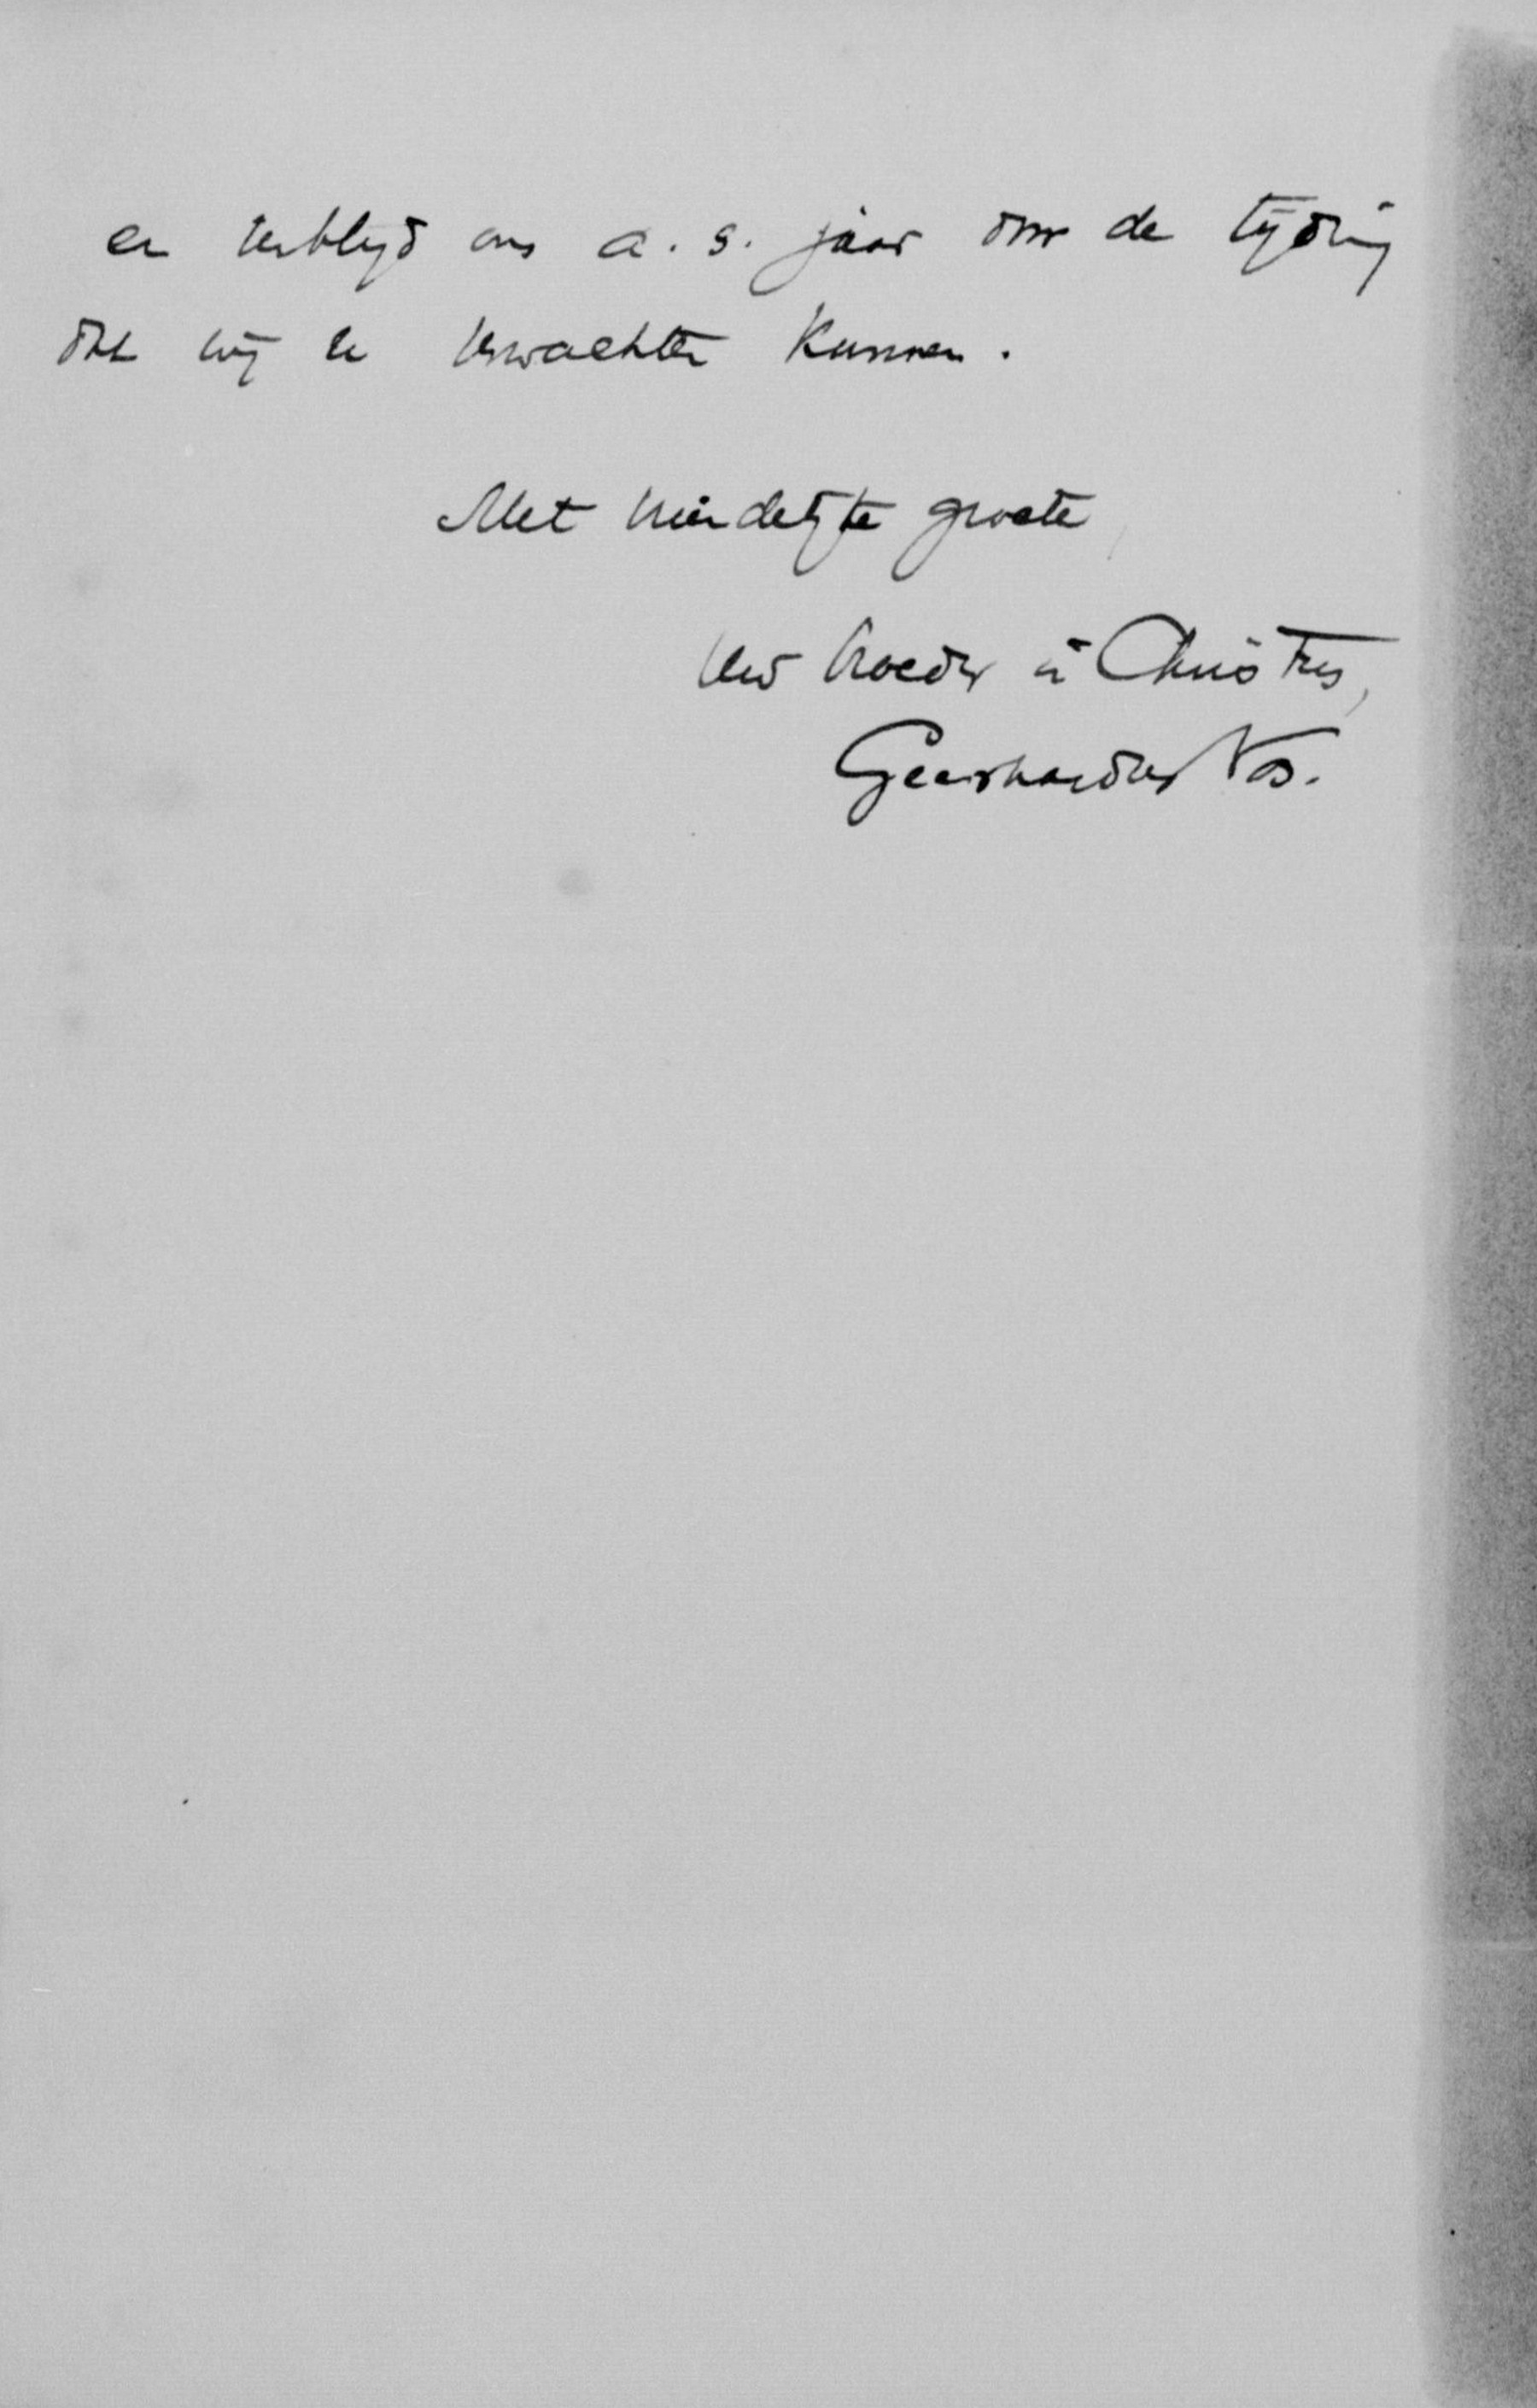 en verblijd ons a.s. jaar door de tijding
dat wij U verwachten kunnen.
Met vriendelijke groete,
Uw broeder in Christus,
Geerhardus Vos.